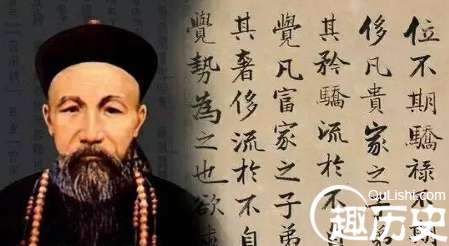 位不期驕祿不期
侈凡貴家之子
其矜驕流於不
覺凡富家之子弟
其奢侈流於不自
覺勢為之也欲
QuLishi.com
趣历史